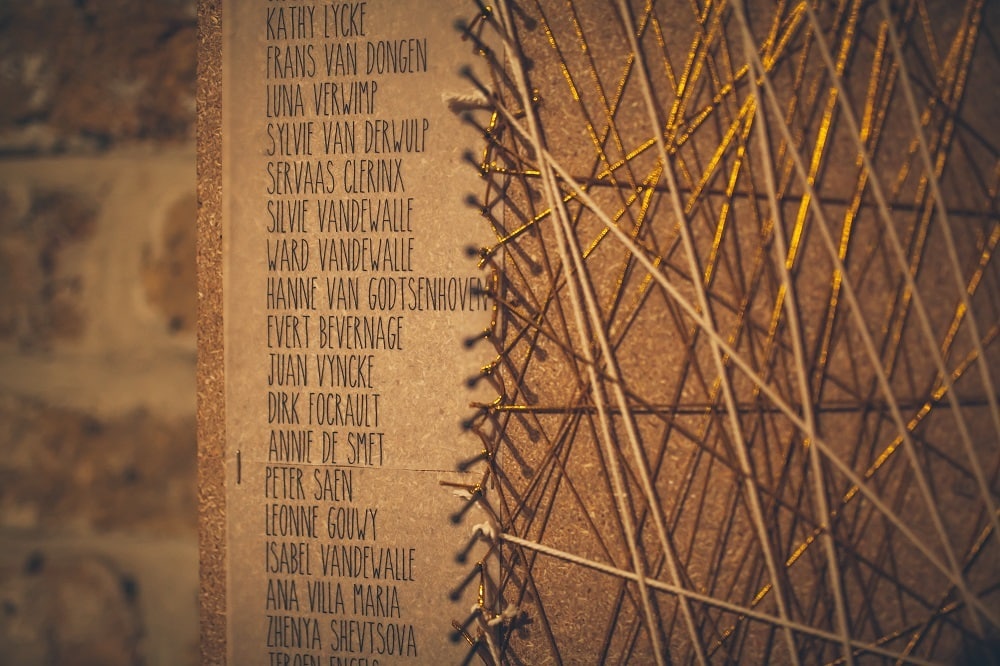 KATHY LYCKE
FRANS VAN DONGEN
LUNA VERWIMP
SYLVIE VAN DERWULP
SERVAAS CLERINX
SILVIE VANDEWALLE
WARD VANDEWALLE
HANNE VAN GODTSENHOVEN
EVERT BEVERNAGE
JUAN VYNCKE
DIRK FOCRAULT
ANNIE DE SMET
PETER SAEN
LEONNE GOUWY
ISABEL VANDEWALLE
ANA VILLA MARIA
ZHENYA SHEVTSOVA
JEROEN ENGELS